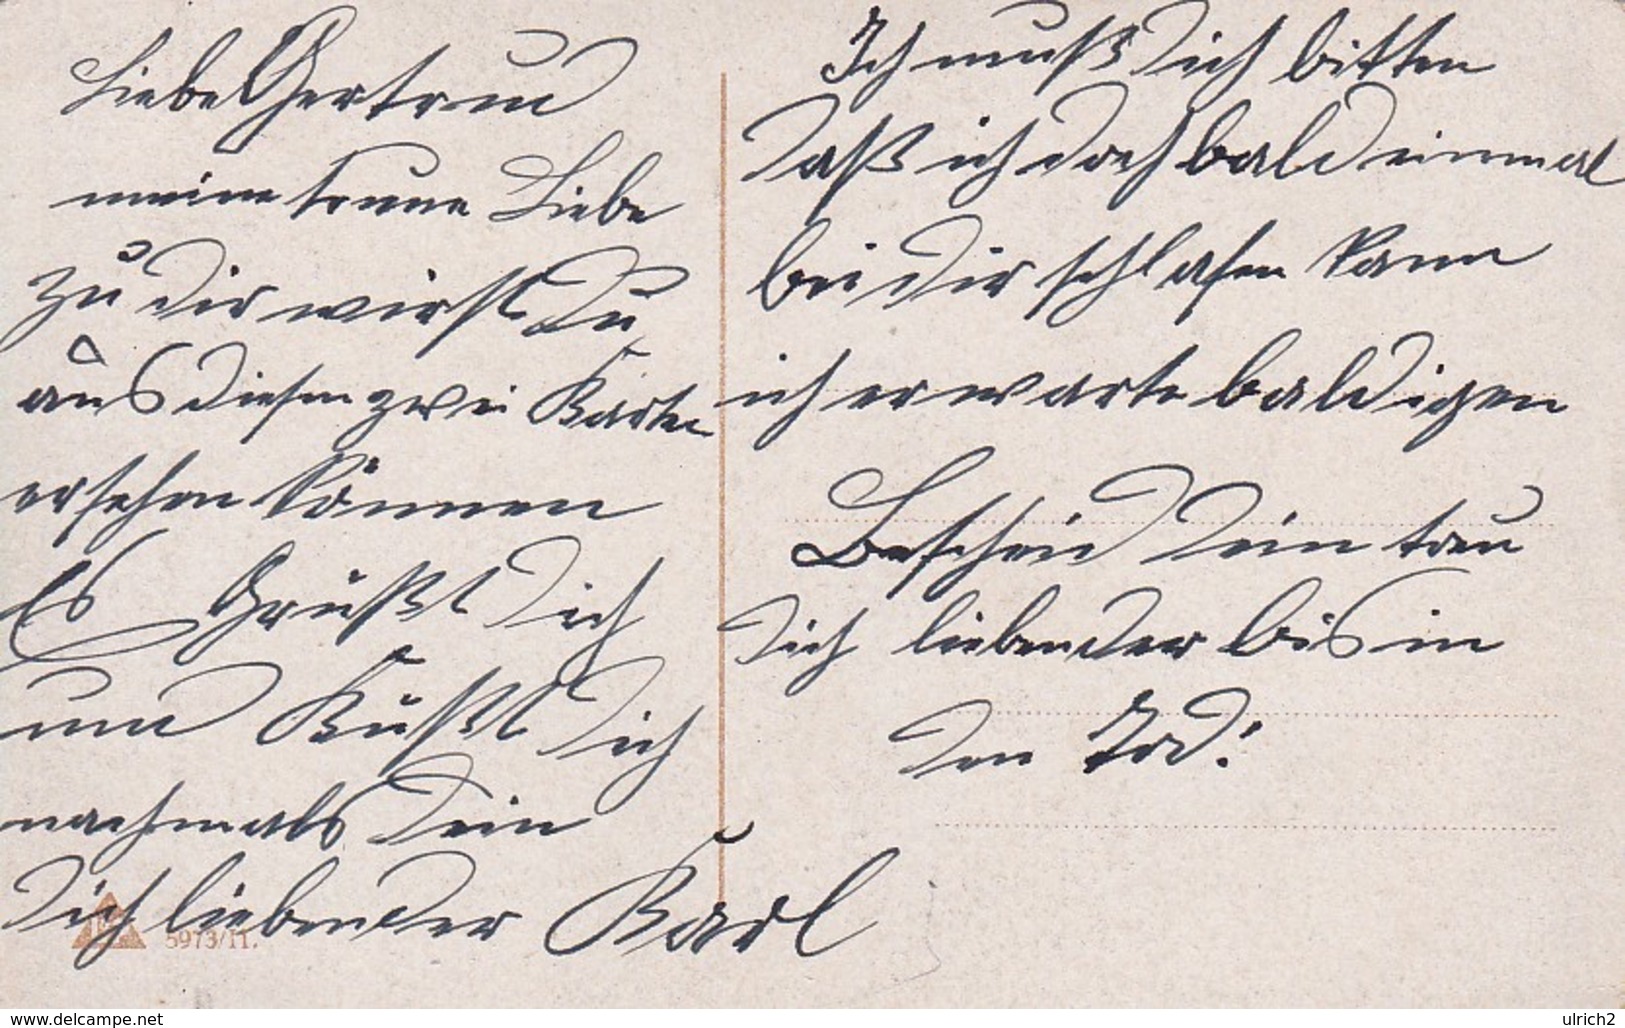 Liebe Gertrud
meine treue Liebe
zu dir wirst Du
aus diesen zwei Karten
ersehen können
Es Grüßt Dich
und Küßt Dich
nachmals Dein
Dich liebender Karl
Ich muß Dich bitten
daß ich doch bald einmal
bei Dir schlafen kann
ich erwarte baldigen
Bescheid Dein treu
Dich liebender bis in
den Tod!
5973/11.
www.delcampe.net
ulrich2